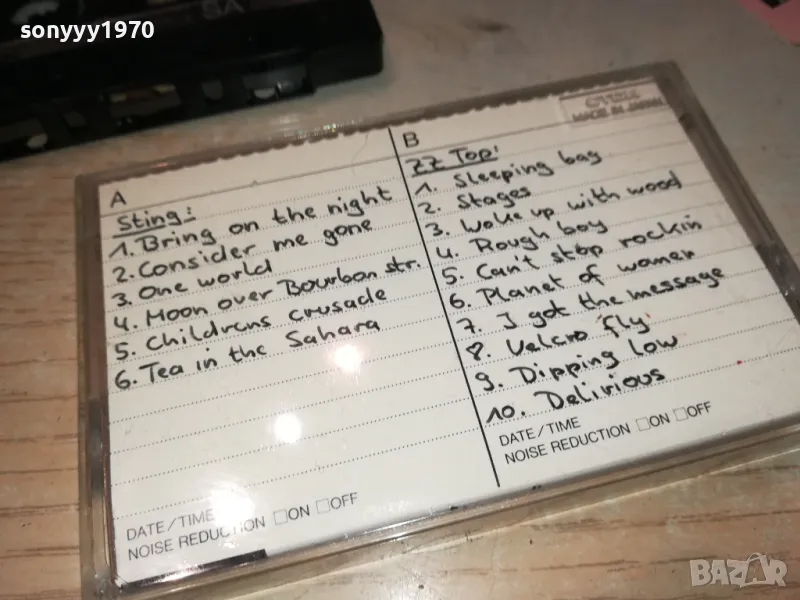 sonyyy1970
SA
A
Sting:
1. Bring on the night
2. Consider me gone
3. One world
4. Moon over Bourbon str.
5. Childrens crusade
6. Tea in the Sahara
DATE/TIME
NOISE REDUCTION □ON □OFF
B
ZZ Top:
1. Sleeping bag
2. Stages
3. Woke up with wood
4. Rough boy
5. Can't stop rockin
6. Planet of women
7. I got the message
8. Velcro fly
9. Dipping low
10. Delirious
DATE/TIME
NOISE REDUCTION □ON □OFF
MADE IN JAPAN
BAZAR